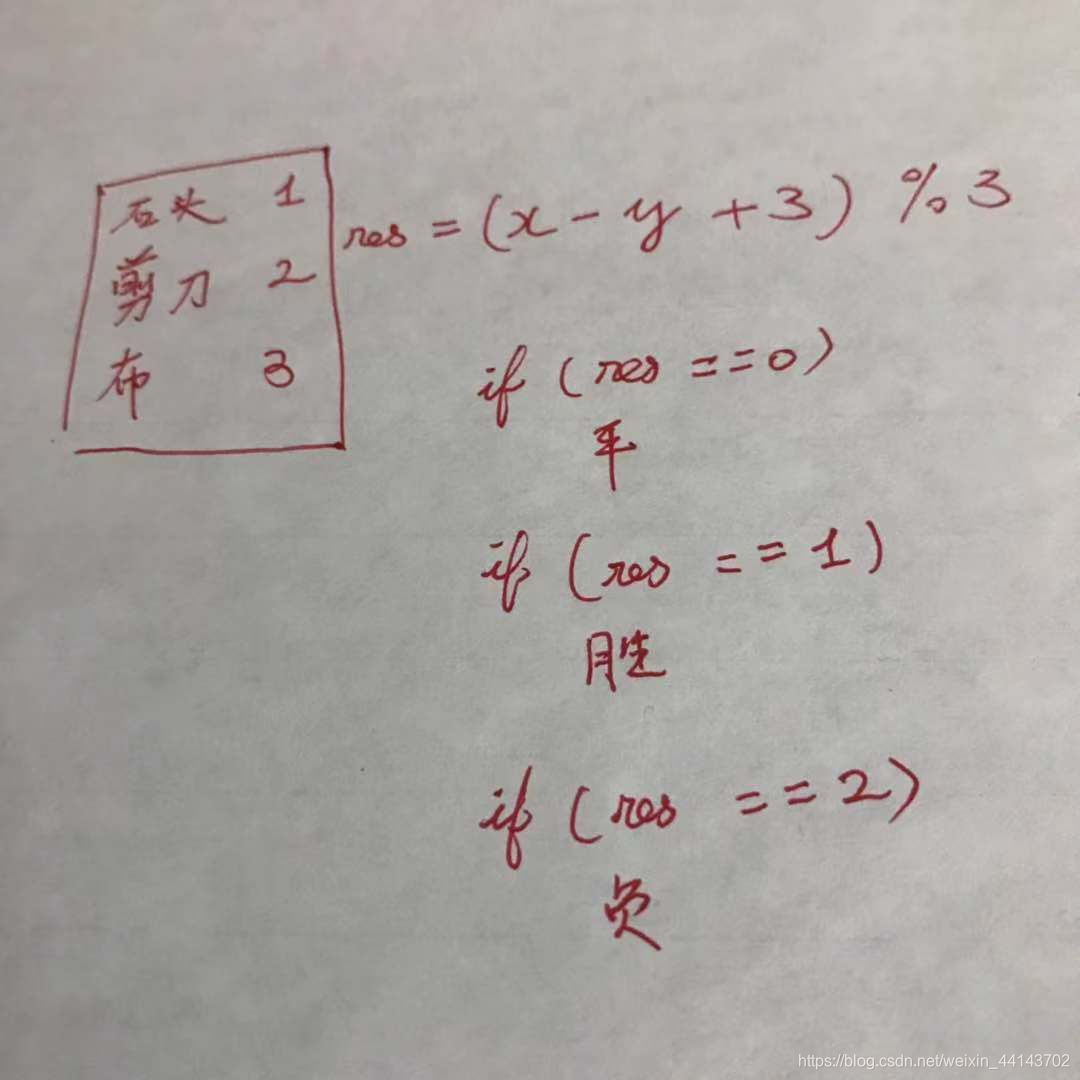 石头 1
剪刀 2
布 3
res = (x - y + 3) % 3
if (res == 0)
平
if (res == 1)
胜
if (res == 2)
负
https://blog.csdn.net/weixin_44143702